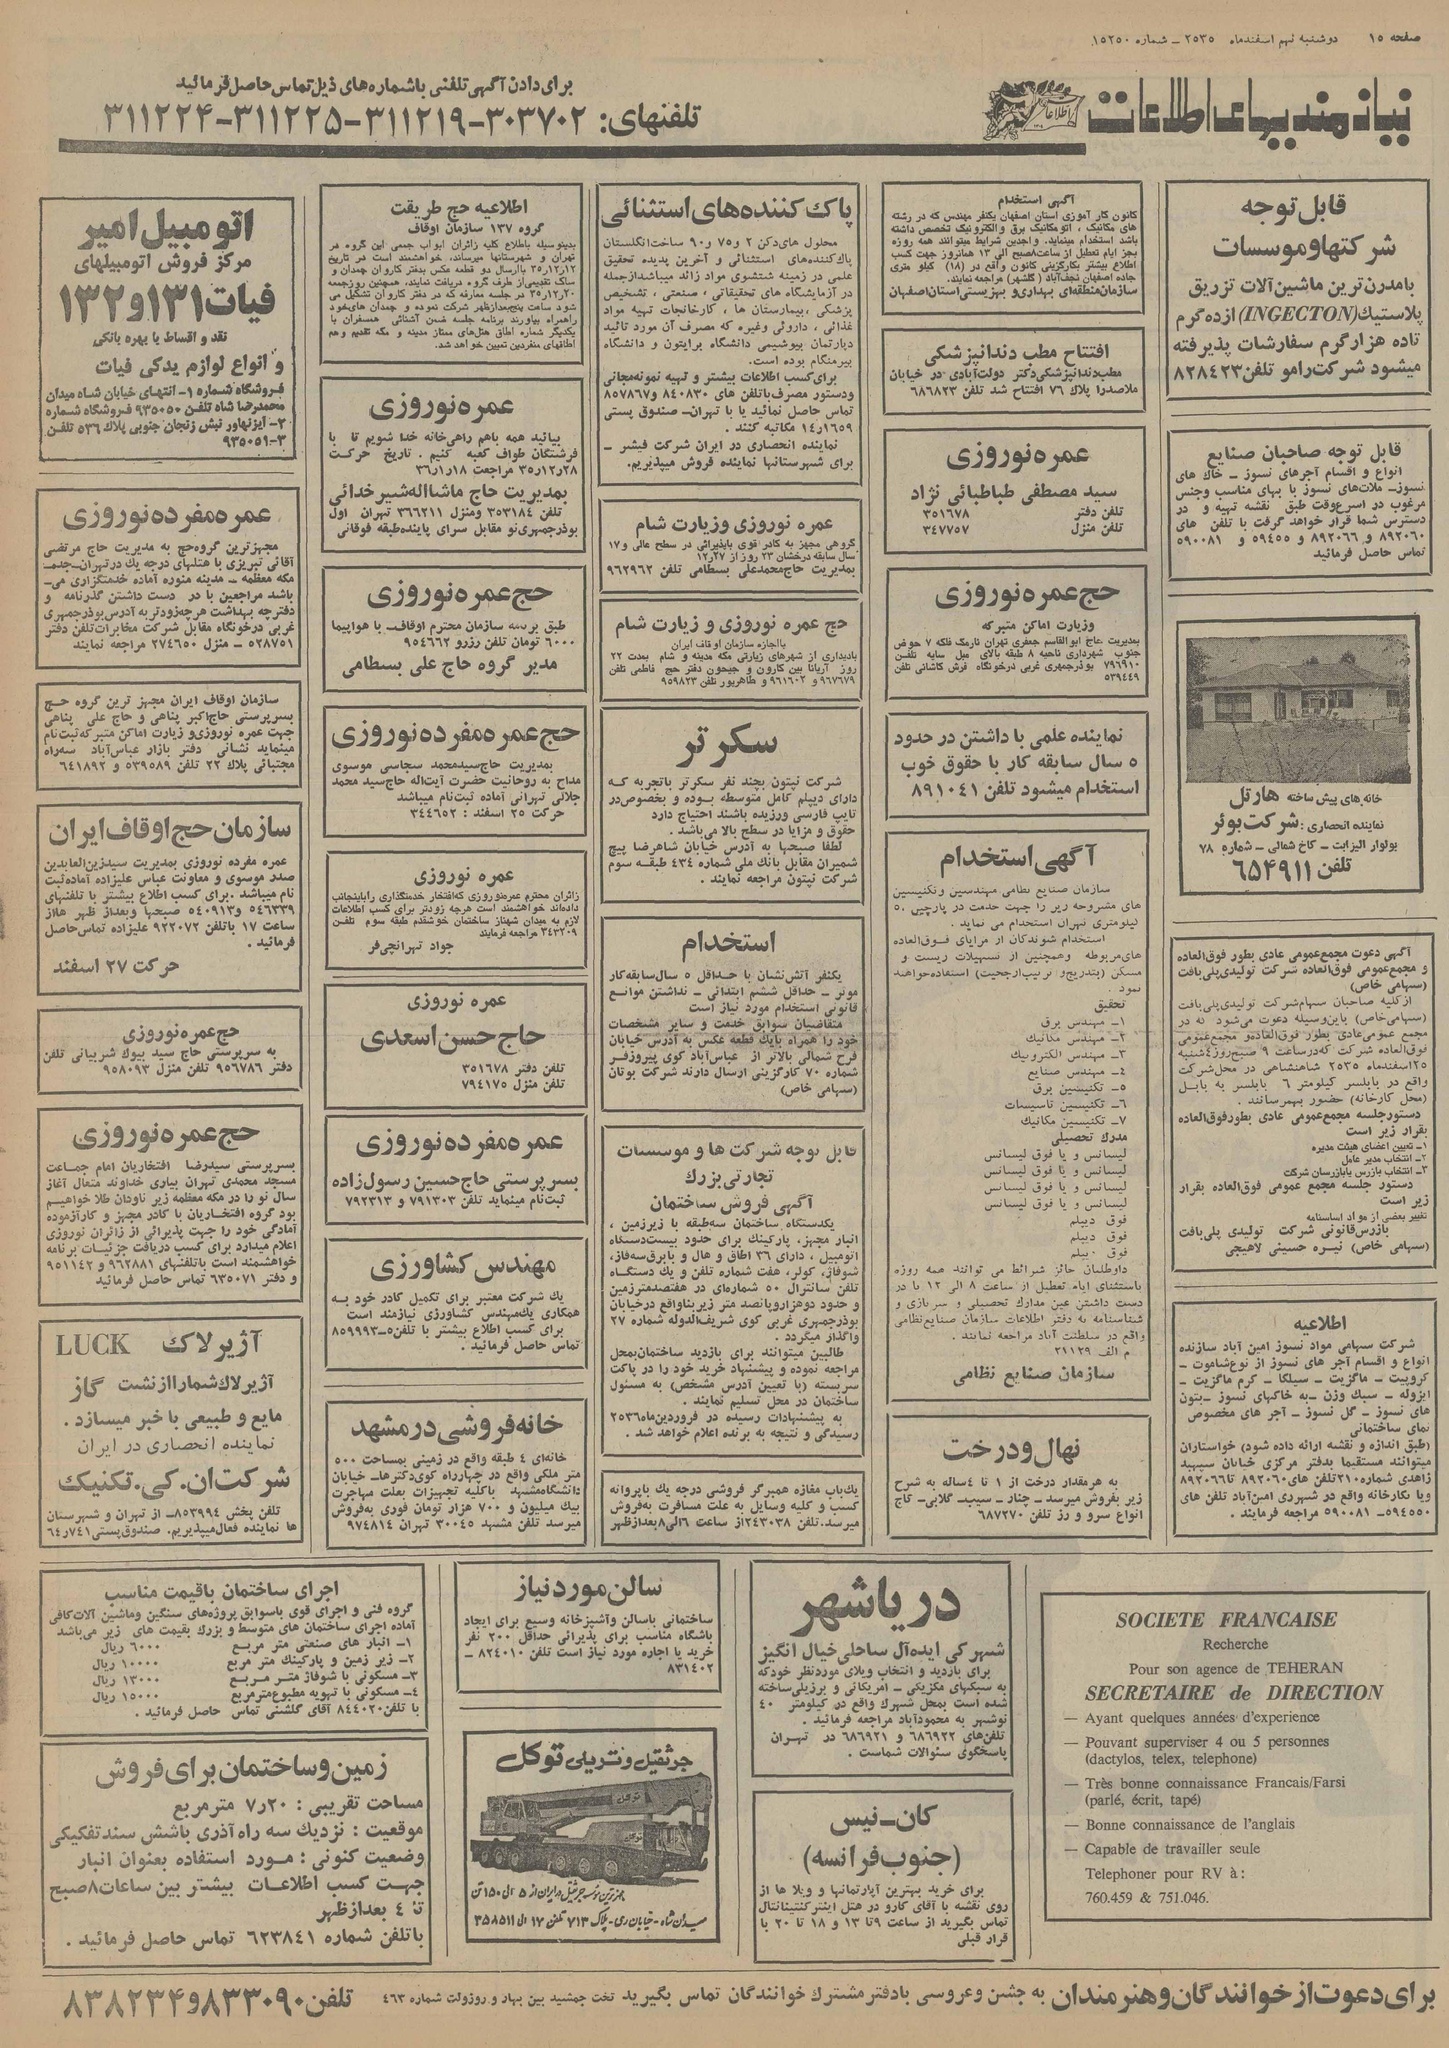 صفحه ۱۵ دوشنبه نهم اسفندماه ۲۵۳۵ ـ شماره ۱۵۲۵۰
نیازمندیهای اطلاعات
برای دادن آگهی تلفنی باشماره‌های ذیل تماس حاصل فرمائید
تلفنهای: ۳۰۳۷۰۲-۳۱۱۲۱۹-۳۱۱۲۲۵-۳۱۱۲۲۴
قابل توجه
شرکتها و موسسات
بامدرن ترین ماشین آلات تزریق
پلاستیک (INGECTON) ازده گرم
تاده هزارگرم سفارشات پذیرفته
میشود شرکت رامو تلفن ۸۲۸۴۲۳
قابل توجه صاحبان صنایع
انواع و اقسام آجرهای نسوز ـ خاک های
نسوزـ ملات‌های نسوز با بهای مناسب وجنس
مرغوب در اسرع‌وقت طبق نقشه تهیه و در
دسترس شما قرار خواهد گرفت با تلفن های
۸۹۲۰۶۰ و ۸۹۲۰۶۶ و ۵۹۴۵۵ و ۵۹۰۰۸۱
تماس حاصل فرمائید
خانه‌های پیش ساخته هارتل
نماینده انحصاری: شرکت بوئر
بولوار الیزابت ـ کاخ شمالی ـ شماره ۷۸
تلفن ۶۵۴۹۱۱
آگهی دعوت مجمع‌عمومی عادی بطور فوق‌العاده
و مجمع‌عمومی فوق‌العاده شرکت تولیدی‌پلی‌بافت
(سهامی خاص)
ازکلیه صاحبان سهام شرکت تولیدی‌پلی‌بافت
(سهامی‌خاص) باین‌وسیله دعوت می‌شود که در
مجمع عمومی‌عادی بطور فوق‌العاده‌و مجمع‌عمومی
فوق‌العاده شرکت که‌درساعت ۹ صبح‌روز ۴شنبه
۲۵اسفندماه ۲۵۳۵ شاهنشاهی در محل شرکت
واقع در بابلسر کیلومتر ۶ بابلسر به بابل
(محل کارخانه) حضور بهمرسانند.
دستورجلسه مجمع‌عمومی عادی بطورفوق‌العاده
بقرار زیر است
۱ـ تعیین اعضای هیئت مدیره
۲ـ انتخاب مدیر عامل
۳ـ انتخاب بازرس یابازرسان شرکت
دستور جلسه مجمع عمومی فوق‌العاده بقرار
زیر است
تغییر بعضی از مواد اساسنامه
بازرس‌قانونی شرکت تولیدی پلی‌بافت
(سهامی خاص) نیره حسینی لاهیجی
اطلاعیه
شرکت سهامی مواد نسوز امین آباد سازنده
انواع و اقسام آجر های نسوز از نوع‌شاموت ـ
کرومیت ـ ماگزیت ـ سیلکا ـ کرم ماگزیت ـ
ایزوله ـ سبک وزن ـ به خاکهای نسوز ـ بتون
های نسوز ـ گل نسوز ـ آجر های مخصوص
نمای ساختمانی
(طبق اندازه و نقشه ارائه داده شود) خواستاران
میتوانند مستقیما بدفتر مرکزی خیابان سپهبد
زاهدی شماره ۲۱۰تلفن های ۸۹۲۰۶۰ تا۸۹۲۰۶۶
ویا بکارخانه واقع در شهرری امین‌آباد تلفن های
۵۹۴۵۵۰ـ ۵۹۰۰۸۱ مراجعه فرمایند.
آگهی استخدام
کانون کار آموزی استان اصفهان یکنفر مهندس که در رشته
های مکانیک، اتومکانیک برق والکترونیک تخصص داشته
باشد استخدام مینماید. واجدین شرایط میتوانند همه روزه
بجز ایام تعطیل از ساعت ۸صبح الی ۱۳ همانروز جهت کسب
اطلاع بیشتر بکارگزینی کانون واقع در (۱۸) کیلو متری
جاده اصفهان نجف‌آباد (گلشهر) مراجعه نمایند.
سازمان منطقه‌ای بهداری و بهزیستی استان اصفهان
افتتاح مطب دندانپزشکی
مطب‌دندانپزشکی‌دکتر دولت‌آبادی در خیابان
ملاصدرا پلاک ۷۶ افتتاح شد تلفن ۶۸۶۸۲۳
عمره نوروزی
سید مصطفی طباطبائی نژاد
تلفن دفتر ۳۵۱۶۷۸
تلفن منزل ۳۴۷۷۵۷
حج عمره نوروزی
وزیارت اماکن متبرکه
بمدیریت حاج ابوالقاسم جعفری تهران نارمک فلکه ۷ حوض
جنوب شهرداری ناحیه ۸ طبقه بالای مبل سایه تلفن
۷۹۶۹۱۰ بوذرجمهری غربی درخونگاه فرش کاشانی تلفن
۵۳۹۴۴۹
نماینده علمی با داشتن در حدود
۵ سال سابقه کار با حقوق خوب
استخدام میشود تلفن ۸۹۱۰۴۱
آگهی استخدام
سازمان صنایع نظامی مهندسین وتکنیسین
های مشروحه زیر را جهت خدمت در پارچین ۵۰
کیلومتری تهران استخدام می نماید.
استخدام شوندگان از مزایای فوق‌العاده
های‌مربوطه وهمچنین از تسهیلات زیست و
مسکن (بتدریج‌و ترتیب‌ارجحیت) استفاده‌خواهند
نمود.
تحقیق
۱ـ مهندس برق
۲ـ مهندس مکانیک
۳ـ مهندس الکترونیک
۴ـ مهندس صنایع
۵ـ تکنیسین برق
۶ـ تکنیسین تاسیسات
۷ـ تکنیسین مکانیک
مدرک تحصیلی
لیسانس و یا فوق لیسانس
لیسانس و یا فوق لیسانس
لیسانس و یا فوق لیسانس
لیسانس و یا فوق لیسانس
فوق دیپلم
فوق دیپلم
فوق دیپلم
داوطلبان حائز شرائط می توانند همه روزه
باستثنای ایام تعطیل از ساعت ۸ الی ۱۲ با در
دست داشتن عین مدارک تحصیلی و سربازی و
شناسنامه به دفتر اطلاعات سازمان صنایع‌نظامی
واقع در سلطنت آباد مراجعه نمایند.
م الف ۲۱۱۲۹
سازمان صنایع نظامی
نهال و درخت
به هرمقدار درخت از ۱ تا ۴ساله به شرح
زیر بفروش میرسد ـ چنار ـ سیب ـ گلابی ـ کاج
انواع سرو و رز تلفن ۶۸۷۲۷۰
پاک کننده‌های استثنائی
محلول های‌دکن ۲ و ۷۵ و ۹۰ ساخت انگلستان
پاک‌کننده‌های استثنائی و آخرین پدیده تحقیق
علمی در زمینه شتشوی مواد زائد میباشد ازجمله
در آزمایشگاه های تحقیقاتی، صنعتی، تشخیص
پزشکی، بیمارستان ها، کارخانجات تهیه مواد
غذائی، داروئی وغیره که مصرف آن مورد تائید
دپارتمان بیوشیمی دانشگاه برایتون و دانشگاه
بیرمنگام بوده است.
برای‌کسب اطلاعات بیشتر و تهیه نمونه‌مجانی
ودستور مصرف‌باتلفن های ۸۴۰۸۳۰ و۸۵۷۸۶۷
تماس حاصل نمائید یا با تهران‌ـ صندوق پستی
۱۴ر۱۶۵۹ مکاتبه کنند.
نماینده انحصاری در ایران شرکت فیشر ـ
برای شهرستانها نماینده فروش میپذیریم.
عمره نوروزی وزیارت شام
گروهی مجهز به کادر قوی باپذیرائی در سطح عالی و ۱۷
سال سابقه درخشان ۲۳ روز از ۱۲ر۲۷
بمدیریت حاج‌محمدعلی بسطامی تلفن ۹۶۲۹۶۲
حج عمره نوروزی و زیارت شام
بااجازه سازمان اوقاف ایران
بابدیداری از شهرهای زیارتی مکه مدینه و شام بمدت ۲۲
روز آریانا بین کارون و جیحون دفتر حج فاطمی تلفن
۹۶۷۶۷۹ و ۹۶۱۶۰۲ و طاهرپور تلفن ۹۵۹۸۲۳
سکرتر
شرکت نپتون بچند نفر سکرتر باتجربه که
دارای دیپلم کامل متوسطه بوده و بخصوص‌در
تایپ فارسی ورزیده باشند احتیاج دارد
حقوق و مزایا در سطح بالا می‌باشد.
لطفا صبحها به آدرس خیابان شاهرضا پیچ
شمیران مقابل بانک ملی شماره ۴۳۴ طبقه سوم
شرکت نپتون مراجعه نمایند.
استخدام
یکنفر آتش‌نشان با حداقل ۵ سال سابقه‌کار
موثر ـ حداقل ششم ابتدائی ـ نداشتن موانع
قانونی استخدام مورد نیاز است
متقاضیان سوابق خدمت و سایر مشخصات
خود را همراه بایک قطعه عکس به آدرس خیابان
فرح شمالی بالاتر از عباس‌آباد کوی پیروزفر
شماره ۷۰ کارگزینی ارسال دارند شرکت بوتان
(سهامی خاص)
قابل توجه شرکت ها و موسسات
تجارتی بزرگ
آگهی فروش ساختمان
یکدستگاه ساختمان سه‌طبقه با زیرزمین،
انبار مجهز، پارکینگ برای حدود بیست‌دستگاه
اتومبیل، دارای ۳۶ اطاق و هال و بابرق‌سه‌فاز،
شوفاژ، کولر، هفت شماره تلفن و یک دستگاه
تلفن سانترال ۵۰ شماره‌ای در هفتصدمترزمین
و حدود دوهزاروپانصد متر زیربناواقع درخیابان
بوذرجمهری غربی کوی شریف‌الدوله شماره ۲۷
واگذار میگردد.
طالبین میتوانند برای بازدید ساختمان‌بمحل
مراجعه نموده و پیشنهاد خرید خود را در پاکت
سربسته (با تعیین آدرس مشخص) به مسئول
ساختمان در محل تسلیم نمایند.
به پیشنهادات رسیده در فروردین‌ماه۲۵۳۶
رسیدگی و نتیجه به برنده اعلام خواهد شد.
یک‌باب مغازه همبرگر فروشی درجه یک باپروانه
کسب و کلیه وسایل به علت مسافرت به‌فروش
میرسد. تلفن ۲۴۳۰۳۸از ساعت ۶الی۸بعدازظهر
اطلاعیه حج طریقت
گروه ۱۳۷ سازمان اوقاف
بدینوسیله باطلاع کلیه زائران ابواب جمعی این گروه در
تهران و شهرستانها میرساند، خواهشمند است در تاریخ
۳۵ر۱۲ر۱۲ باارسال دو قطعه عکس بدفتر کاروان چمدان و
ساک تقدیمی از طرف گروه دریافت نمایند، همچنین روزجمعه
۳۵ر۱۲ر۲۰ در جلسه معارفه که در دفتر کاروان تشکیل می
شود ساعت پنج‌بعدازظهر شرکت نموده و چمدان های‌خود
راهمراه بیاورند برنامه جلسه ضمن آشنائی همسفران با
یکدیگر شماره اطاق هتل‌های ممتاز مدینه و مکه تقدیم وهم
اطاقهای منفردین تعیین خواهد شد.
عمره نوروزی
بیائید همه باهم راهی‌خانه خدا شویم تا با
فرشتگان طواف کعبه کنیم. تاریخ حرکت
۳۵ر۱۲ر۲۸ مراجعت ۳۶ر۱ر۱۸
بمدیریت حاج ماشااله شیرخدائی
تلفن ۳۵۳۱۸۴ ومنزل ۳۶۶۲۱۱ تهران اول
بوذرجمهری‌نو مقابل سرای پاینده‌طبقه فوقانی
حج عمره نوروزی
طبق برنامه سازمان محترم اوقاف ـ با هواپیما
۶۰۰۰ تومان تلفن رزرو ۹۵۴۶۶۲
مدیر گروه حاج علی بسطامی
حج عمره مفرده نوروزی
بمدیریت حاج‌سیدمحمد سجاسی موسوی
مداح به روحانیت حضرت آیت‌اله حاج‌سید محمد
جلالی تهرانی آماده ثبت‌نام میباشد
حرکت ۲۵ اسفند: ۳۴۴۶۵۲
عمره نوروزی
زائران محترم عمره‌نوروزی که‌افتخار خدمتگذاری راباینجانب
داده‌اند خواهشمند است هرچه زودتر برای کسب اطلاعات
لازم به میدان شهناز ساختمان خوشقدم طبقه سوم تلفن
۳۴۳۲۰۹ مراجعه فرمایند
جواد تهرانچی‌فر
عمره نوروزی
حاج حسن اسعدی
تلفن دفتر ۳۵۱۶۷۸
تلفن منزل ۷۹۴۱۷۵
عمره مفرده نوروزی
بسرپرستی حاج‌حسین رسول‌زاده
ثبت‌نام مینماید تلفن ۷۹۱۳۰۳ و ۷۹۲۳۱۳
مهندس کشاورزی
یک شرکت معتبر برای تکمیل کادر خود به
همکاری یک‌مهندس کشاورزی نیازمند است
برای کسب اطلاع بیشتر با تلفن ۵ـ۸۵۹۹۹۳
تماس حاصل فرمائید.
خانه فروشی در مشهد
خانه‌ای ۴ طبقه واقع در زمینی بمساحت ۵۰۰
متر ملکی واقع در چهارراه کوی‌دکترهاـ خیابان
دانشگاه‌مشهد باکلیه تجهیزات بعلت مهاجرت
بیک میلیون و ۷۰۰ هزار تومان فوری به‌فروش
میرسد تلفن مشهد ۳۰۰۴۵ تهران ۹۷۴۸۱۴
اتومبیل امیر
مرکز فروش اتومبیلهای
فیات ۱۳۱ و ۱۳۲
نقد و اقساط با بهره بانکی
و انواع لوازم یدکی فیات
فروشگاه شماره ۱ـ انتهای خیابان شاه میدان
محمدرضا شاه تلفن ۹۳۵۰۵۰ فروشگاه شماره
۲ـ آیزنهاور نبش زنجان جنوبی پلاک ۵۳۶ تلفن
۳ـ۹۳۵۰۵۱
عمره مفرده نوروزی
مجهزترین گروه‌حج به مدیریت حاج مرتضی
آقائی تبریزی با هتلهای درجه یک درتهران‌ـ‌جده‌ـ
مکه معظمه ـ مدینه منوره آماده خدمتگزاری می‌ـ
باشد مراجعین با در دست داشتن گذرنامه و
دفترچه بهداشت هرچه‌زودتر به آدرس بوذرجمهری
غربی درخونگاه مقابل شرکت مخابرات‌تلفن دفتر
۵۲۸۷۵۱ ـ منزل ۲۷۴۶۵۰ مراجعه نمایند
سازمان اوقاف ایران مجهز ترین گروه حج
بسرپرستی حاج‌اکبر پناهی و حاج علی پناهی
جهت عمره نوروزی‌و زیارت اماکن متبرکه‌ثبت‌نام
مینماید نشانی دفتر بازار عباس‌آباد سه‌راه
مجتبائی پلاک ۲۲ تلفن ۵۳۹۵۸۹ و ۶۴۱۸۹۲
سازمان حج اوقاف ایران
عمره مفرده نوروزی بمدیریت سیدزین‌العابدین
صدر موسوی و معاونت عباس علیزاده آماده‌ثبت
نام میباشد. برای کسب اطلاع بیشتر با تلفنهای
۵۴۶۳۳۹ و۵۴۰۹۱۳ صبحها وبعداز ظهر هااز
ساعت ۱۷ باتلفن ۹۲۲۰۷۲ علیزاده تماس‌حاصل
فرمائید.
حرکت ۲۷ اسفند
حج عمره نوروزی
به سرپرستی حاج سید بیوک شربیانی تلفن
دفتر ۹۵۶۷۸۶ تلفن منزل ۹۵۸۰۹۳
حج عمره نوروزی
بسرپرستی سیدرضا افتخاریان امام جماعت
مسجد محمدی تهران بیاری خداوند متعال آغاز
سال نو را در مکه معظمه زیر ناودان طلا خواهیم
بود گروه افتخاریان با کادر مجهز و کارآزموده
آمادگی خود را جهت پذیرائی از زائران نوروزی
اعلام میدارد برای کسب دریافت جزئیات برنامه
خواهشمند است باتلفنهای ۹۶۲۸۸۱ و ۹۵۱۱۴۲
و دفتر ۶۳۵۰۷۱ تماس حاصل فرمائید
آژیر لاک LUCK
آژیر لاک شمارا از نشت گاز
مایع و طبیعی با خبر میسازد.
نماینده انحصاری در ایران
شرکت ان. کی. تکنیک
تلفن پخش ۸۵۳۹۹۴ـ از تهران و شهرستان
ها نماینده فعال‌میپذیریم. صندوق‌پستی۷۴۱ر۶۴
SOCIETE FRANCAISE
Recherche
Pour son agence de TEHERAN
SECRETAIRE de DIRECTION
— Ayant quelques années d'experience
— Pouvant superviser 4 ou 5 personnes
(dactylos, telex, telephone)
— Très bonne connaissance Francais/Farsi
(parlé, écrit, tapé)
— Bonne connaissance de l'anglais
— Capable de travailler seule
Telephoner pour RV à :
760.459 & 751.046.
دریاشهر
شهرکی ایده‌آل ساحلی خیال انگیز
برای بازدید و انتخاب ویلای موردنظر خودکه
به سبکهای مکزیکی ـ آمریکائی و برزیلی‌ساخته
شده است بمحل شهرک واقع در کیلومتر ۴۰
نوشهر به محمودآباد مراجعه فرمائید.
تلفن‌های ۶۸۶۹۲۲ و ۶۸۶۹۲۱ در تهران
پاسخگوی سئوالات شماست.
کان‌ـ‌نیس
(جنوب فرانسه)
برای خرید بهترین آپارتمانها و ویلا ها از
روی نقشه با آقای کارو در هتل اینترکنتیناتال
تماس بگیرید از ساعت ۹تا ۱۳ و ۱۸ تا ۲۰ با
قرار قبلی
سالن مورد نیاز
ساختمانی باسالن وآشپزخانه وسیع برای ایجاد
باشگاه مناسب برای پذیرائی حداقل ۲۰۰ نفر
خرید یا اجاره مورد نیاز است تلفن ۸۲۴۰۱۰ ـ
۸۳۱۴۰۲
جرثقیل و تریلی توکل
توکل
توکل
مجهزترین موسسه جرثقیل در ایران از ۵ الی ۱۵۰ تن
میدان شاه ـ خیابان ری ـ پلاک ۷۱۳ تلفن ۱۷ الی ۳۵۸۵۱۱
اجرای ساختمان باقیمت مناسب
گروه فنی و اجرای قوی باسوابق پروژه‌های سنگین وماشین آلات‌کافی
آماده اجرای ساختمان های متوسط و بزرک بقیمت های زیر می‌باشد
۱ـ انبار های صنعتی متر مربع ۶۰۰۰ ریال
۲ـ زیر زمین و پارکینگ متر مربع ۱۰۰۰۰ ریال
۳ـ مسکونی با شوفاژ متر مربع ۱۳۰۰۰ ریال
۴ـ مسکونی با تهویه مطبوع‌مترمربع ۱۵۰۰۰ ریال
با تلفن ۸۴۴۰۲۰ آقای گلشنی تماس حاصل فرمائید.
زمین و ساختمان برای فروش
مساحت تقریبی: ۷ر۲۰ مترمربع
موقعیت: نزدیک سه راه آذری باشش سند تفکیکی
وضعیت کنونی: مورد استفاده بعنوان انبار
جهت کسب اطلاعات بیشتر بین ساعات ۸صبح
تا ۴ بعدازظهر
باتلفن شماره ۶۲۳۸۴۱ تماس حاصل فرمائید.
برای دعوت از خوانندگان و هنرمندان به جشن وعروسی بادفتر مشترک خوانندگان تماس بگیرید تخت جمشید بین بهار و روزولت شماره ۴۶۳ تلفن ۸۳۳۰۹۰و۸۳۸۲۳۴